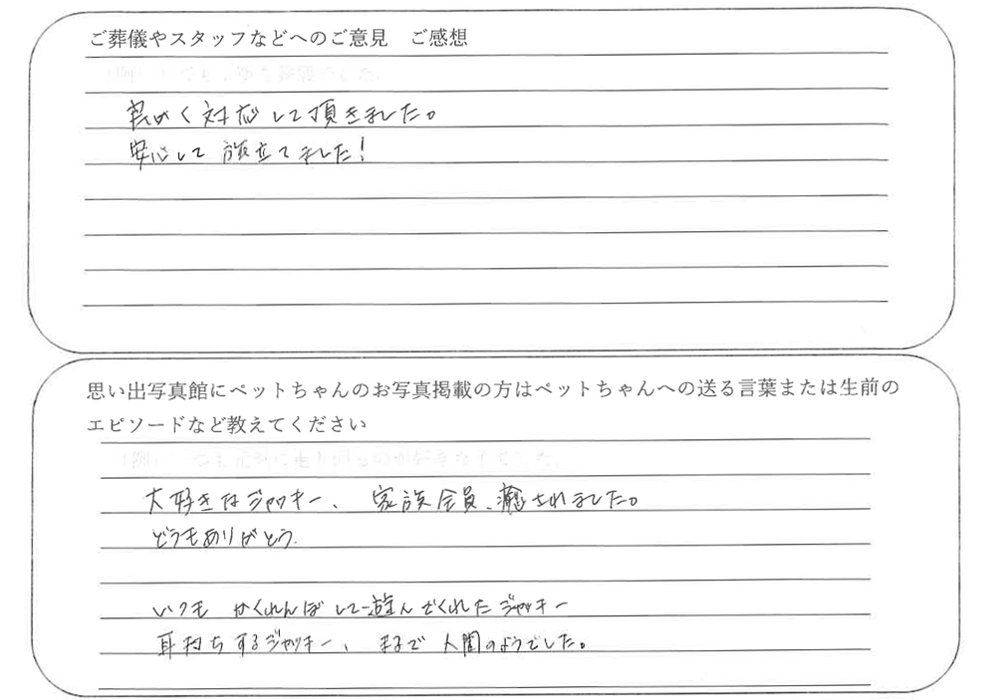 ご葬儀やスタッフなどへのご意見　ご感想
対応して頂きました。
安心して 旅立てました!
思い出写真館にペットちゃんのお写真掲載の方はペットちゃんへの送る言葉または生前の
エピソードなど教えてください
大好きなジャッキー、 家族全員、癒されました。
どうもありがとう.
いつも かくれんぼして遊んでくれたジャッキー
するジャッキー、 まるで 人間のようでした。